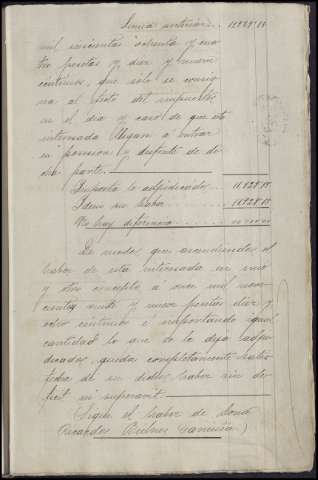 Suma anterior.. 11929'18
mil seiscientas ochenta y cua
tro pesetas y diez y nueve
céntimos, que sólo se consig
na al objeto del impuesto
en el día y caso de que esta
interesada llegara á entrar
en posesion y disfrute de di
cha parte.
Importa lo adjudicado... 11929'18
Idem su haber........ 11929'18
No hay diferencia.....
De modo que ascendiendo el
haber de esta interesada en uno
y otro concepto á once mil nove
cientas veinte y nueve pesetas diez y
ocho céntimos é importando igual
cantidad lo que se le deja adju
dicado, queda completamente satis
fecha de su dicho haber sin de
ficit ni superavit.
Sigue el haber de Doña